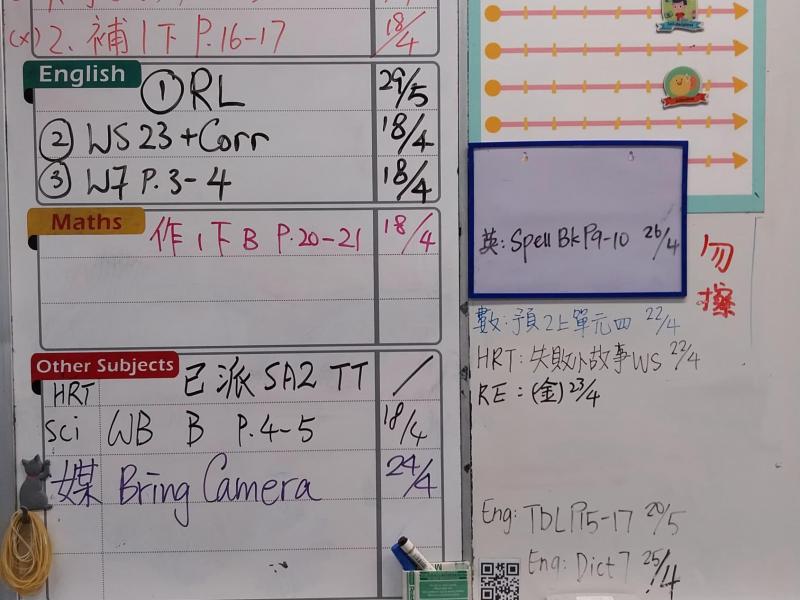 (x) 2. 補1下 P.16-17 18/4
English
① RL 29/5
② WS 23 + Corr 18/4
③ W7 P.3-4 18/4
Maths
作1下B P.20-21 18/4
Other Subjects
HRT 已派 SA2 TT /
Sci WB B P.4-5 18/4
媒 Bring Camera 24/4
英: Spell Bk P9-10 26/4
勿擦
數: 預2上單元四 22/4
HRT: 失敗小故事WS 22/4
RE: (金) 23/4
Eng: TbLP15-17 20/5
Eng: Dict 7 25/4